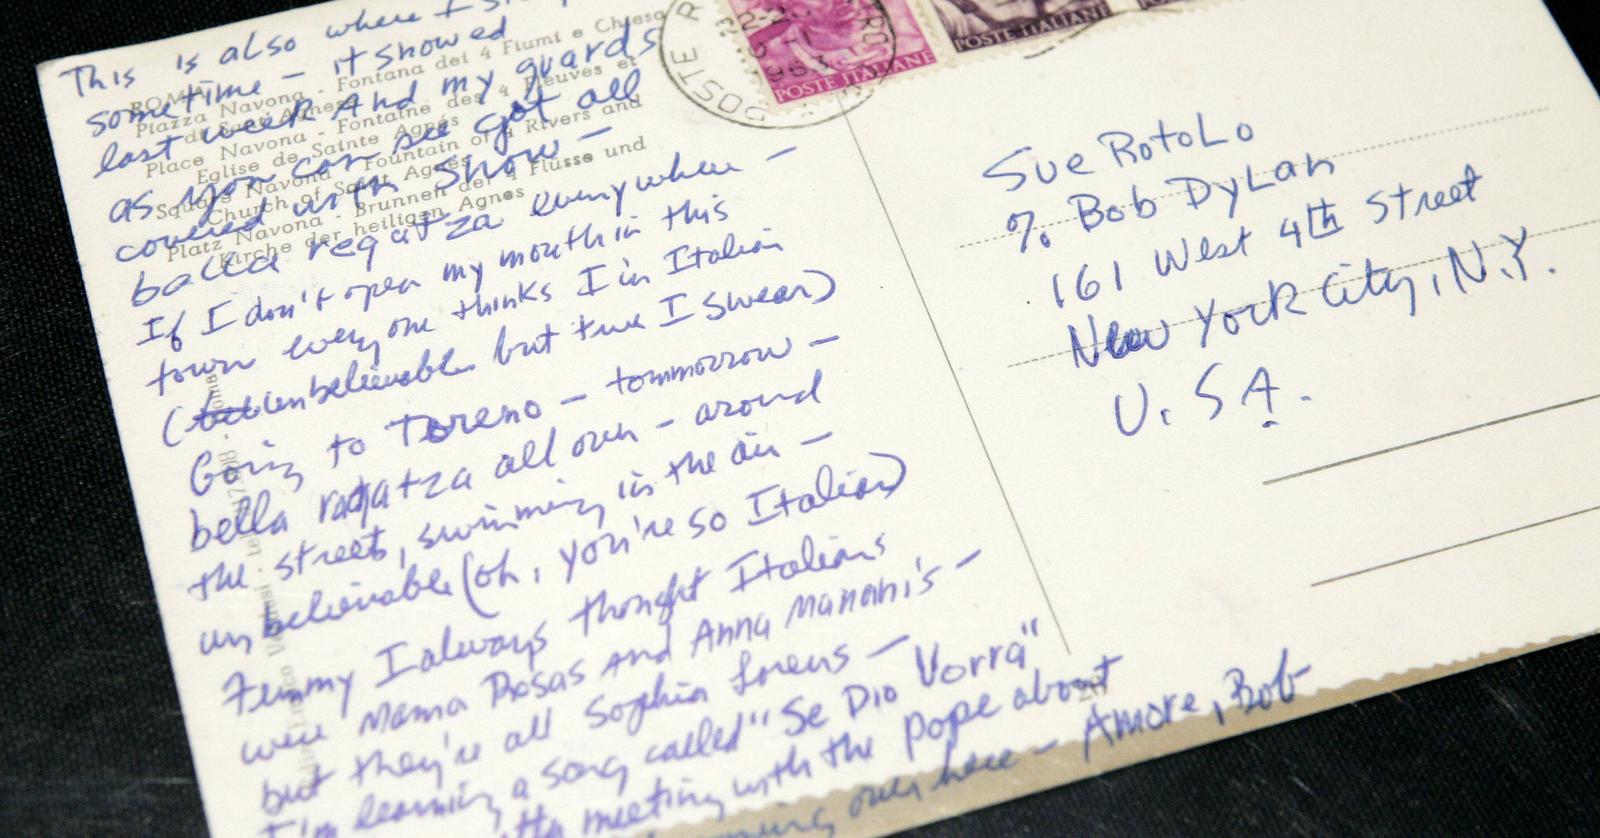 This is also where I
sometime - it showed
last week And my guards
as you can see got all
covered with snow -
bella regatza everywhere -
If I don't open my mouth in this
town everyone thinks I in Italian
(unbelievable but true I swear)
Going to Toreno - tommorrow -
bella ragatza all over - around
the street, swimming in the air -
unbelievable (oh, you're so Italian)
Funny I always thought Italians
were Mama Rosas and Anna Manani's -
but they're all Sophia Lorens -
I'm learning a song called "Se Dio Vorra"
meeting with the pope about
over here - Amore, Bob
ROMA
Piazza Navona - Fontana dei 4 Fiumi e Chiesa
di Sant'Agnese
Place Navona - Fontaine des 4 Fleuves et
Eglise de Sainte Agnés
Square Navona - Fountain of 4 Rivers and
Church of Saint Agnes
Platz Navona - Brunnen der 4 Flüsse und
Kirche der heiligen Agnes
POSTE R
1963
POSTE ITALIANE
POSTE ITALIANE
Sue RotoLo
% Bob DyLan
161 West 4th Street
New York City, N.Y.
U.S.A.